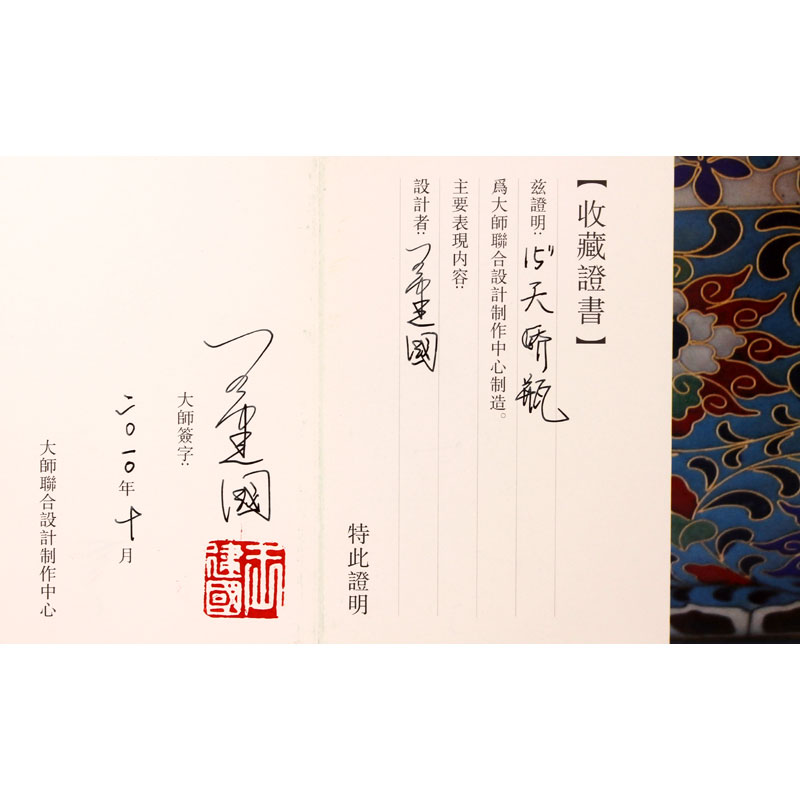 【收藏證書】
兹證明:15"天骄瓶
爲大師聯合設計制作中心制造。
主要表現内容:
設計者:建國
特此證明
大師簽字:
建國
建國
二〇一〇年十月
大師聯合設計制作中心